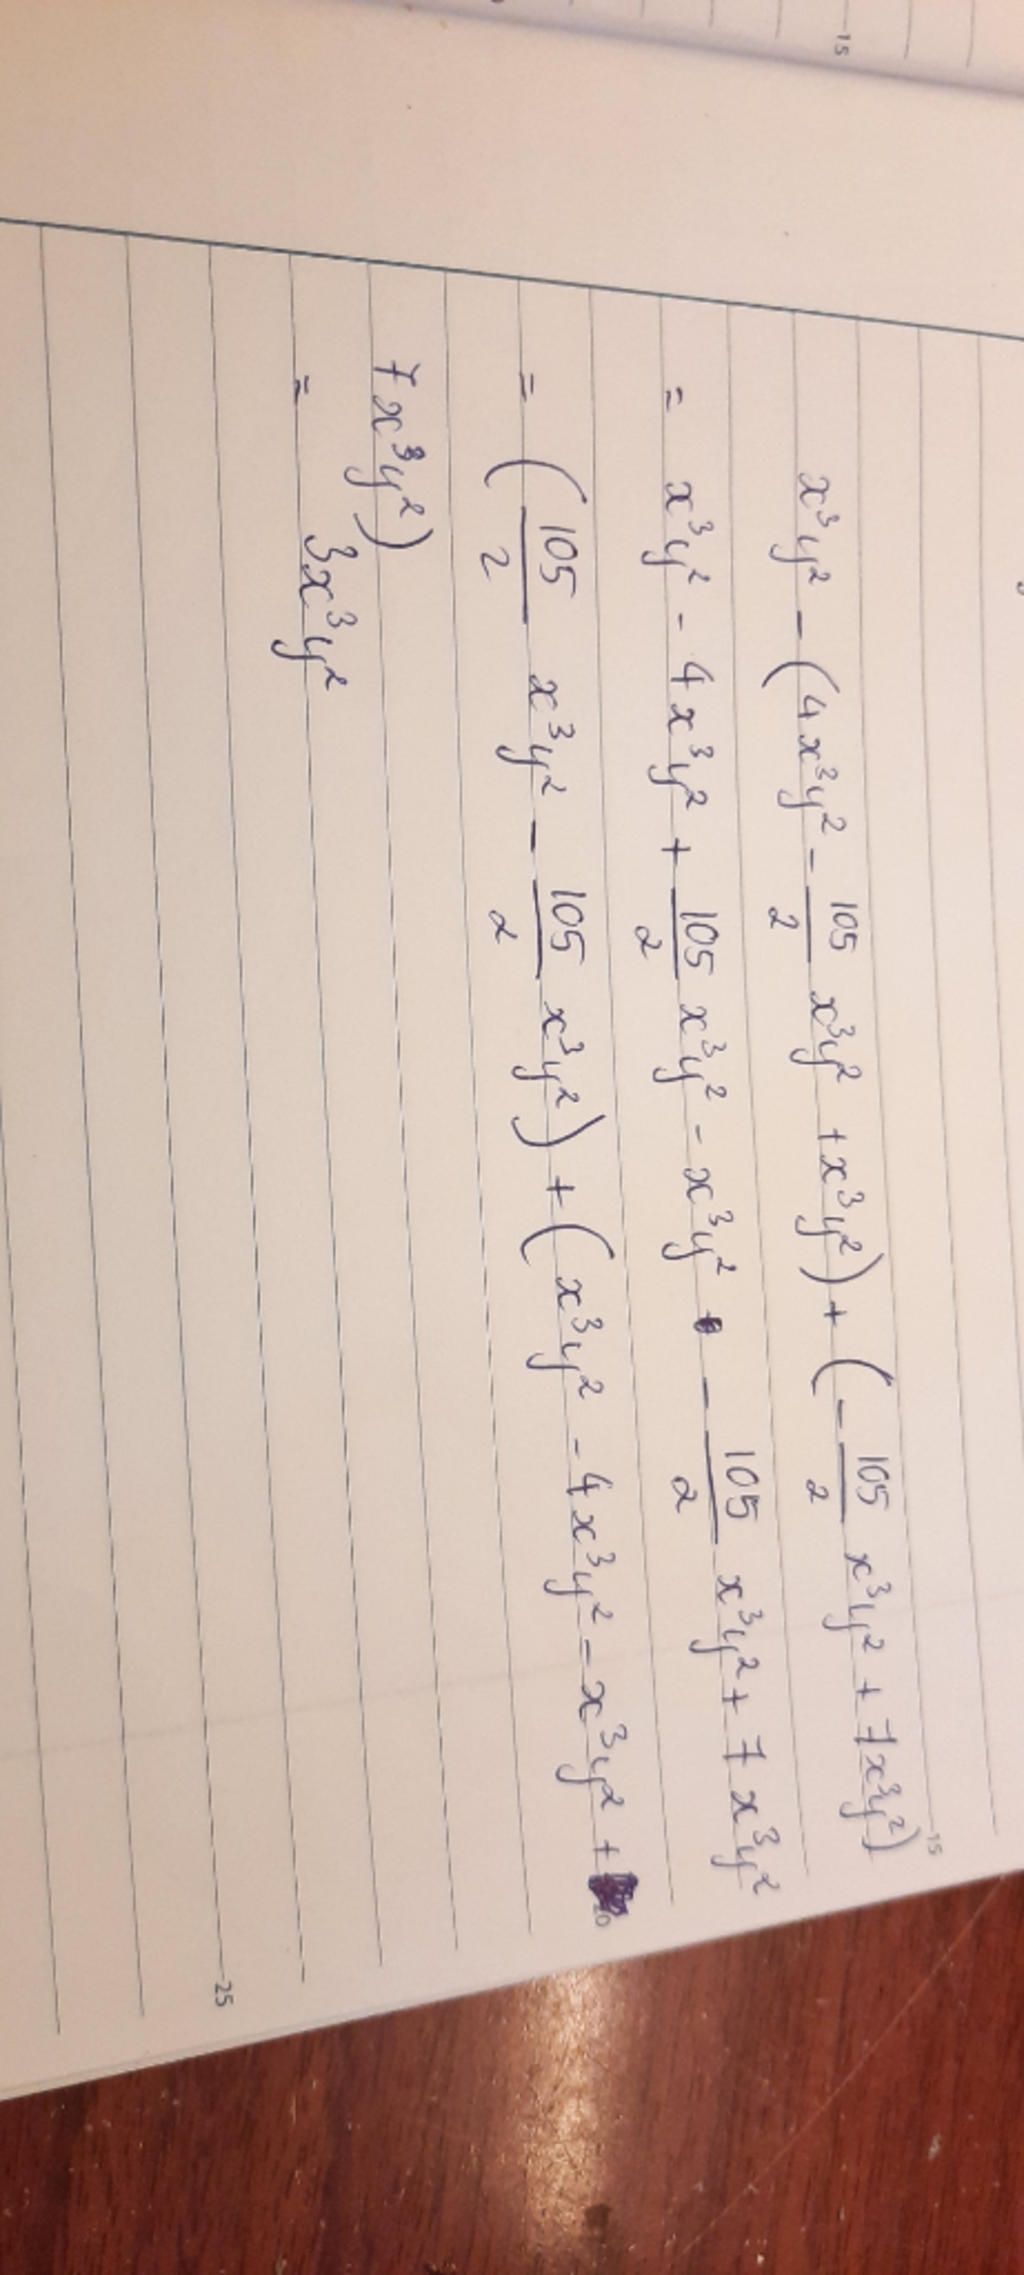 15
x³y² - (4x³y² - 105/2 x³y² + x³y²) + (- 105/2 x³y² + 7x³y²)
15
= x³y² - 4x³y² + 105/2 x³y² - x³y² - 105/2 x³y² + 7x³y²
= (105/2 x³y² - 105/2 x³y²) + (x³y² - 4x³y² - x³y² +
7x³y²)
= 3x³y²
25